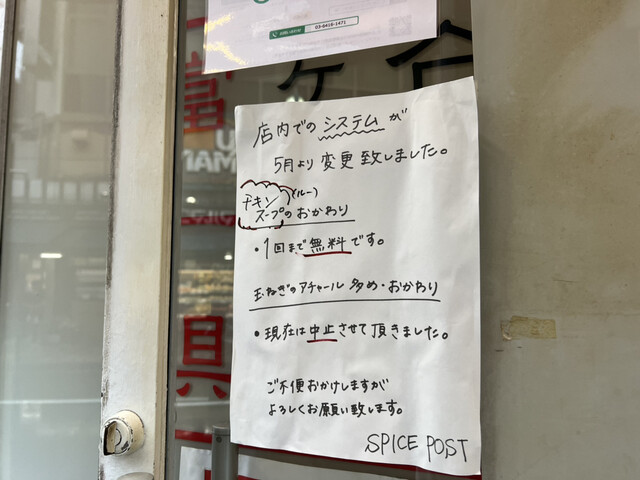 03-6416-1471
ケ谷
富
U
MAR
具
店内でのシステムが
5月より変更致しました。
チキン(ルー)
スープのおかわり
・1回まで無料です。
玉ねぎのアチャール 多め・おかわり
・現在は中止させて頂きました。
ご不便おかけしますが
よろしくお願い致します。
SPICE POST